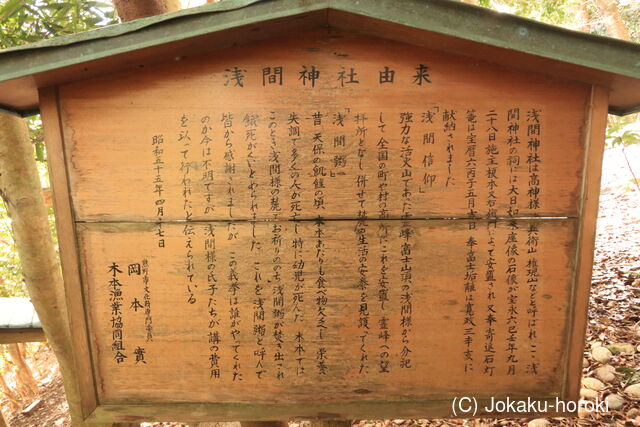 浅間神社由来
浅間神社は高城様、兵術山、権現山などと呼ばれ、ここ浅
間神社の祠には大日如来座像の石像が宝永六己丑年九月
二十八日施主榎本又右衛門によって安置され又奉寄進石灯
篭は宝暦六丙子五月吉日奉富士垢離は寛政三辛亥に
献納されました
「浅間信仰」
強力な活火山であった霊峰富士山宮の浅間様から分祀
して全国の町や村の高所にこれを安置し霊峰への望
拝所となし併せて
生活の安泰を見護ってくれた
「浅間粥」
昔天保の飢饉の頃、木本あたりも食べ物欠乏し栄養
失調で多くの人が死亡し特に幼児が死んだ木本では
このとき浅間様の発でお祈りののち浅間粥が焚き出され
餓死がくいとめられました これを浅間粥と呼んで
皆から感謝されましたが この義挙は誰がやってくれた
のか今は不明ですが浅間様の氏子たちが講の費用
を以って行われたと伝えられている
昭和五十五年四月二十七日
熊野市文化財専門委員
岡本實
木本漁業協同組合
(C) Jokaku-horoki